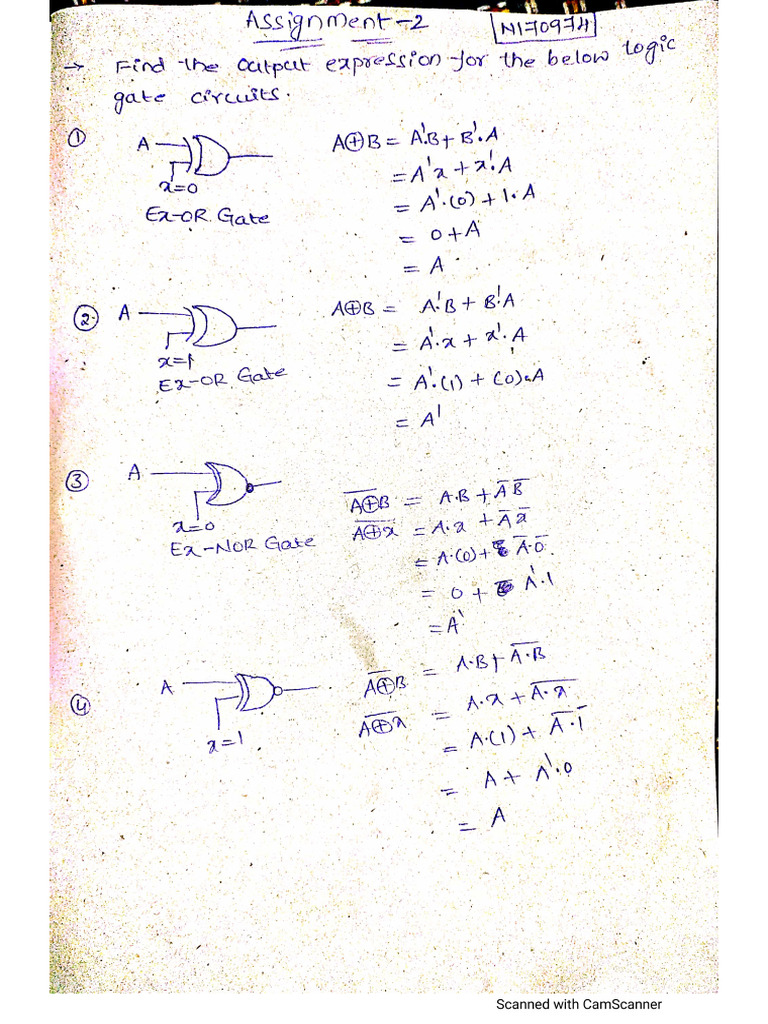 Assignment-2
N170974
→ Find the output expression for the below logic
gate circuits.
①
A
x=0
Ex-OR Gate
A⊕B = A'.B + B'.A
= A'x + x'.A
= A'.(0) + 1.A
= 0+A
= A
②
A
x=1
Ex-OR Gate
A⊕B = A'.B + B'.A
= A'.x + x'.A
= A'.(1) + (0).A
= A'
③
A
x=0
Ex-NOR Gate
A̅⊕̅B̅ = A.B + A̅ B̅
A̅⊕̅x̅ = A.x + A̅ x̅
= A.(0) + A̅.0̅.
= 0 + A'.1
= A'
④
A
x=1
A̅⊕̅B̅ = A.B + A̅.̅B̅
A̅⊕̅x̅ = A.x + A̅.̅x̅
= A.(1) + A̅.1̅
= A + A'.0
= A
Scanned with CamScanner